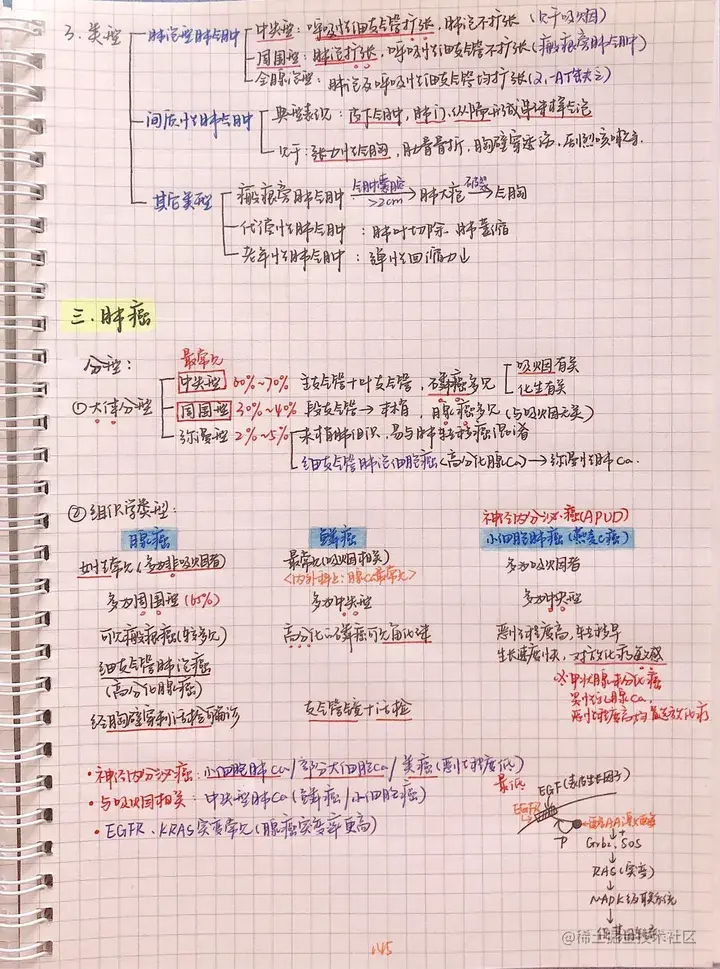 3. 类型
肺泡型肺气肿
中央型：呼吸性细支气管扩张，肺泡不扩张（见于吸烟）
周围型：肺泡扩张，呼吸性细支气管不扩张（瘢痕旁肺气肿）
全腺泡型：肺泡及呼吸性细支气管均扩张（α1-AT缺乏）
间质性肺气肿
典型表现：皮下气肿，肺门、纵膈形成串珠样气泡
见于：张力性气胸，肋骨骨折，胸壁穿透伤，剧烈咳嗽
其它类型
瘢痕旁肺气肿 气肿囊腔 >2cm → 肺大疱 破裂 → 气胸
代偿性肺气肿：肺叶切除、肺萎缩
老年性肺气肿：弹性回缩力↓
三.肺癌
分型：
最常见
①大体分型
中央型 60%~70% 主支气管+叶支气管，鳞癌多见
吸烟有关
化生有关
周围型 30%~40% 段支气管→末梢，腺癌多见（与吸烟无关）
弥漫型 2%~5% 末梢肺组织，易与肺转移癌混淆
细支气管肺泡细胞癌（高分化腺Ca）→弥漫性肺Ca.
②组织学类型：
神经内分泌癌(APUD)
腺癌 鳞癌 小细胞肺癌（燕麦C癌）
女性常见（多为非吸烟者） 最常见（吸烟相关） 多为吸烟者
<内外科上：腺Ca最常见>
多为周围型（65%） 多为中央型 多为中央型
可见瘢痕癌（转移多见） 高分化的鳞癌可见角化珠 恶性程度高，转移早
细支气管肺泡癌 生长速度快，对放化疗敏感
（高分化腺癌） ※甲状腺未分化癌
经胸壁穿刺活检可确诊 支气管镜+活检
恶性程度高均首选放化疗
·神经内分泌癌：小细胞肺Ca/部分大细胞Ca/类癌（恶性程度低）
最低
·与吸烟相关：中央型肺Ca（鳞癌/小细胞癌）
·EGFR、KRAS突变常见（腺癌突变率更高）
EGF（表皮生长因子）
EGFR
P
Grb2, SOS
↓
RAS（突变）
↓
MAPK级联系统
↓
145
@稀土掘金技术社区